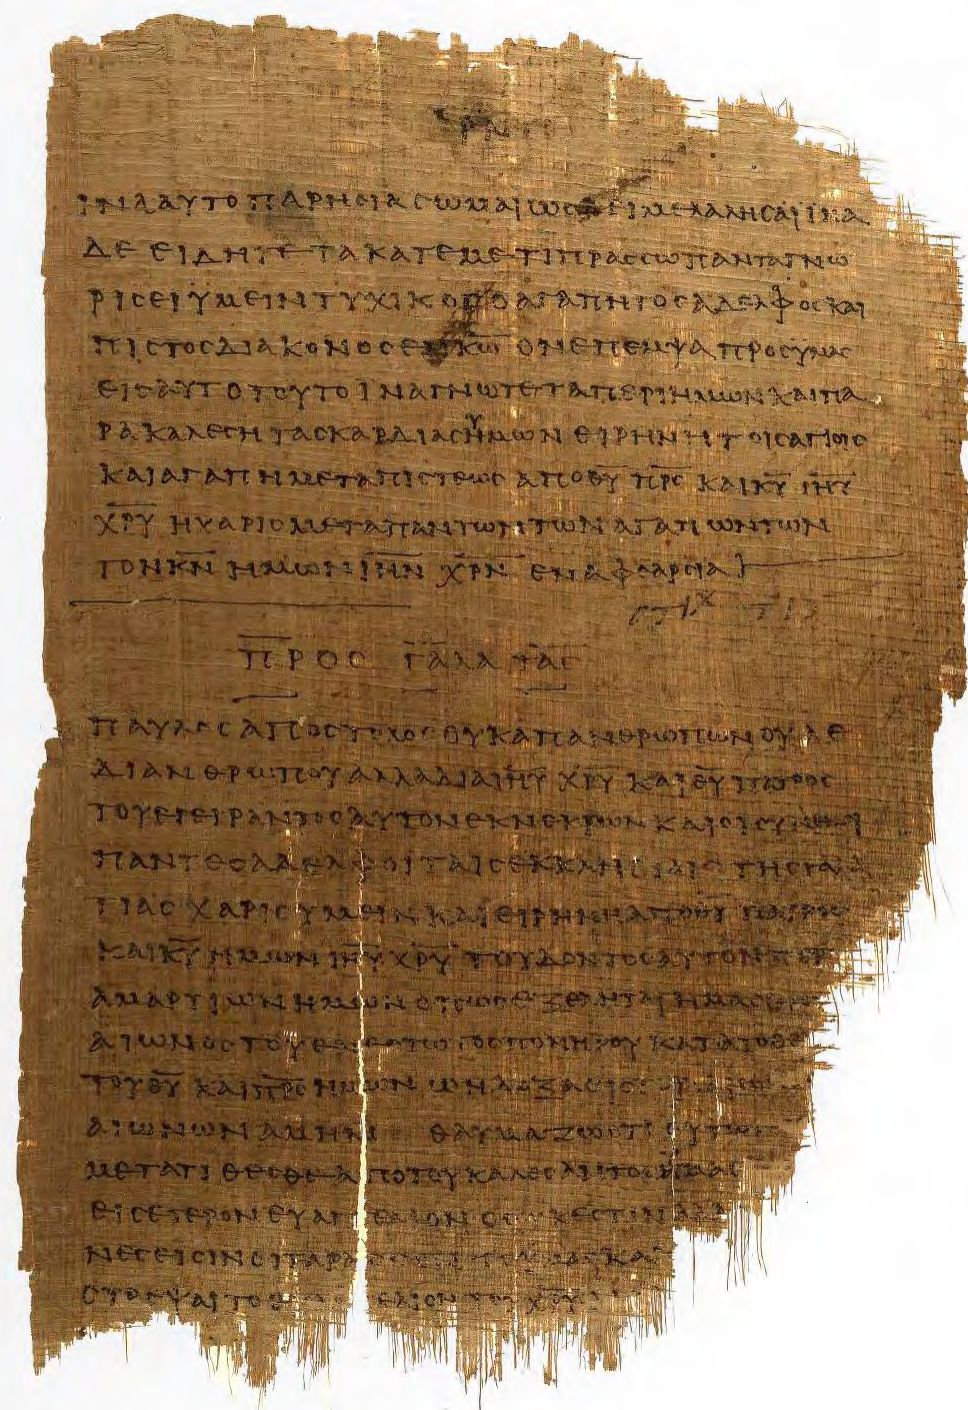 ΙΝΑ ΑΥΤΟ ΠΑΡΗΣΙΑΣΩΜΑΙ ΩΣ ΔΕΙ ΜΕ ΛΑΛΗΣΑΙ ΙΝΑ
ΔΕ ΕΙΔΗΤΕ ΤΑ ΚΑΤ ΕΜΕ ΤΙ ΠΡΑΣΣΩ ΠΑΝΤΑ ΓΝΩ
ΡΙΣΕΙ ΥΜΕΙΝ ΤΥΧΙΚΟΣ Ο ΑΓΑΠΗΤΟΣ ΑΔΕΛΦΟΣ ΚΑΙ
ΠΙΣΤΟΣ ΔΙΑΚΟΝΟΣ ΕΝ ΚΩ ΟΝ ΕΠΕΜΨΑ ΠΡΟΣ ΥΜΑΣ
ΕΙΣ ΑΥΤΟ ΤΟΥΤΟ ΙΝΑ ΓΝΩΤΕ ΤΑ ΠΕΡΙ ΗΜΩΝ ΚΑΙ ΠΑ
ΡΑΚΑΛΕΣΗ ΤΑΣ ΚΑΡΔΙΑΣ ΗΜΩΝ ΕΙΡΗΝΗ ΤΟΙΣ ΑΓΙΟΙΣ
ΚΑΙ ΑΓΑΠΗ ΜΕΤΑ ΠΙΣΤΕΩΣ ΑΠΟ ΘΥ ΠΡΣ ΚΑΙ ΚΥ ΙΗΥ
ΧΡΥ Η ΧΑΡΙΣ ΜΕΤΑ ΠΑΝΤΩΝ ΤΩΝ ΑΓΑΠΩΝΤΩΝ
ΤΟΝ ΚΝ ΗΜΩΝ ΙΗΝ ΧΡΝ ΕΝ ΑΦΘΑΡΣΙΑ
ΣΤΙΧ
ΠΡΟΣ ΓΑΛΑΤΑΣ
ΠΑΥΛΟΣ ΑΠΟΣΤΟΛΟΣ ΟΥΚ ΑΠ ΑΝΘΡΩΠΩΝ ΟΥΔΕ
ΔΙ ΑΝΘΡΩΠΟΥ ΑΛΛΑ ΔΙΑ ΙΗΥ ΧΡΥ ΚΑΙ ΘΥ ΠΑΤΡΟΣ
ΤΟΥ ΕΓΕΙΡΑΝΤΟΣ ΑΥΤΟΝ ΕΚ ΝΕΚΡΩΝ ΚΑΙ ΟΙ ΣΥΝ ΕΜΟΙ
ΠΑΝΤΕΣ ΑΔΕΛΦΟΙ ΤΑΙΣ ΕΚΚΛΗΣΙΑΙΣ ΤΗΣ ΓΑΛΑ
ΤΙΑΣ ΧΑΡΙΣ ΥΜΕΙΝ ΚΑΙ ΕΙΡΗΝΗ ΑΠΟ ΘΥ ΠΑΤΡΟΣ
ΚΑΙ ΚΥ ΗΜΩΝ ΙΗΥ ΧΡΥ ΤΟΥ ΔΟΝΤΟΣ ΑΥΤΟΝ ΠΕΡ
ΑΜΑΡΤΙΩΝ ΗΜΩΝ ΟΠΩΣ ΕΞΕΛΗΤΑΙ ΗΜΑΣ
ΑΙΩΝΟΣ ΤΟΥ ΕΝΕΣΤΩΤΟΣ ΠΟΝΗΡΟΥ ΚΑΤΑ ΤΟ ΘΕ
ΤΟΥ ΘΥ ΚΑΙ ΠΡΣ ΗΜΩΝ Ω Η ΔΟΞΑ ΕΙΣ
ΑΙΩΝΩΝ ΑΜΗΝ ΘΑΥΜΑΖΩ ΟΤΙ ΟΥΤΩΣ
ΜΕΤΑΤΙΘΕΣΘΕ ΑΠΟ ΤΟΥ ΚΑΛΕΣΑΝΤΟΣ ΥΜΑΣ
ΕΙΣ ΕΤΕΡΟΝ ΕΥΑΓΓΕΛΙΟΝ Ο ΟΥΚ ΕΣΤΙΝ ΑΛΛ
ΝΕΣ ΕΙΣΙΝ ΟΙ ΤΑΡΑ ΥΜΑΣ ΚΑΙ
ΣΤΡΕΨΑΙ ΤΟ ΕΥΑΓΓΕΛΙΟΝ ΤΟΥ ΧΡΥ